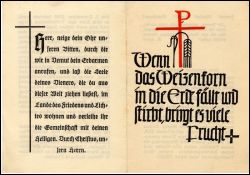 Herr, neige dein Ohr un-
seren Bitten, durch die
wir in Demut dein Erbarmen
anrufen, und laß die Seele
deines Dieners, die du aus
dieser Welt ziehen ließest, im
Lande des Friedens und Lich-
tes wohnen und verleihe ihr
die Gemeinschaft mit deinen
Heiligen. Durch Christus, un-
sern Herrn.
Wenn
das Weizenkorn
in die Erde fällt und
stirbt, bringt es viele
Frucht